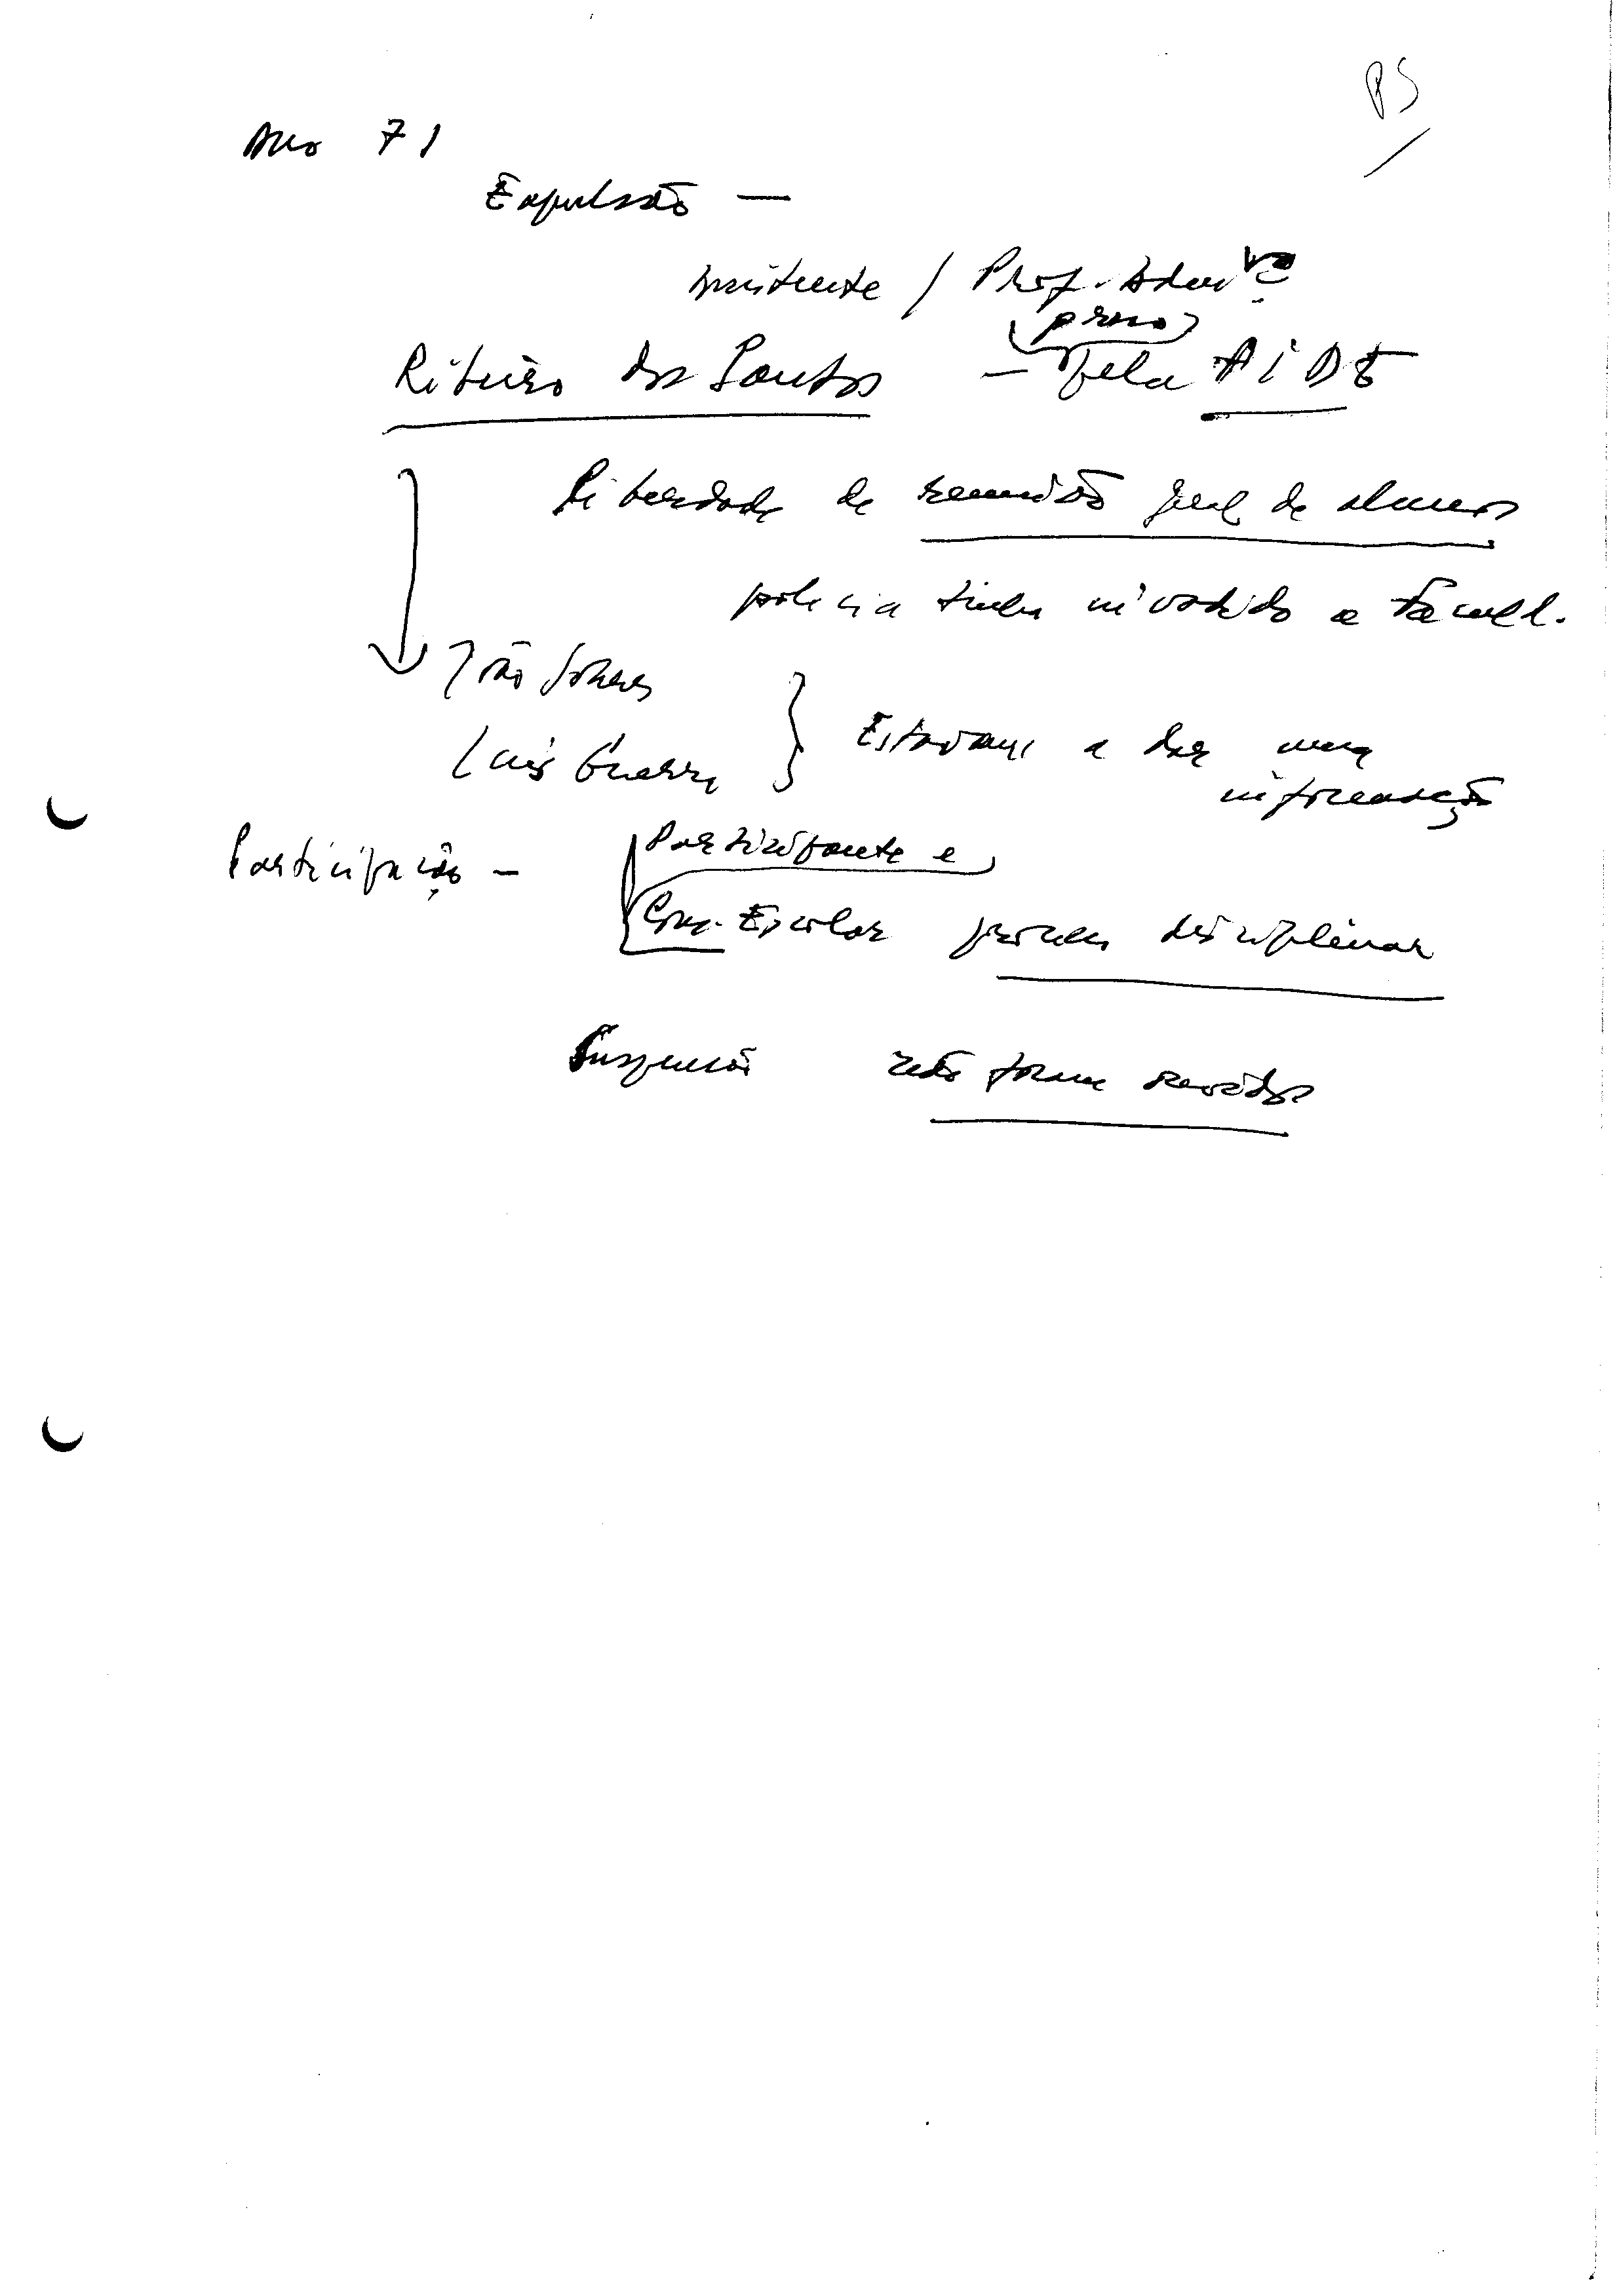 PS
Ano 71
Expulsão —
assistente / Prof.
preso
Ribeiro dos Santos — pela PIDE
Liberdade de reunião geral de alunos
policia tinha invadido a Facul.
João Soares
Luís Guerra } Estavam a dar uma
informação
Participação — Participante e
Cons. Escolar processo disciplinar
Suspensão não foram ouvidos